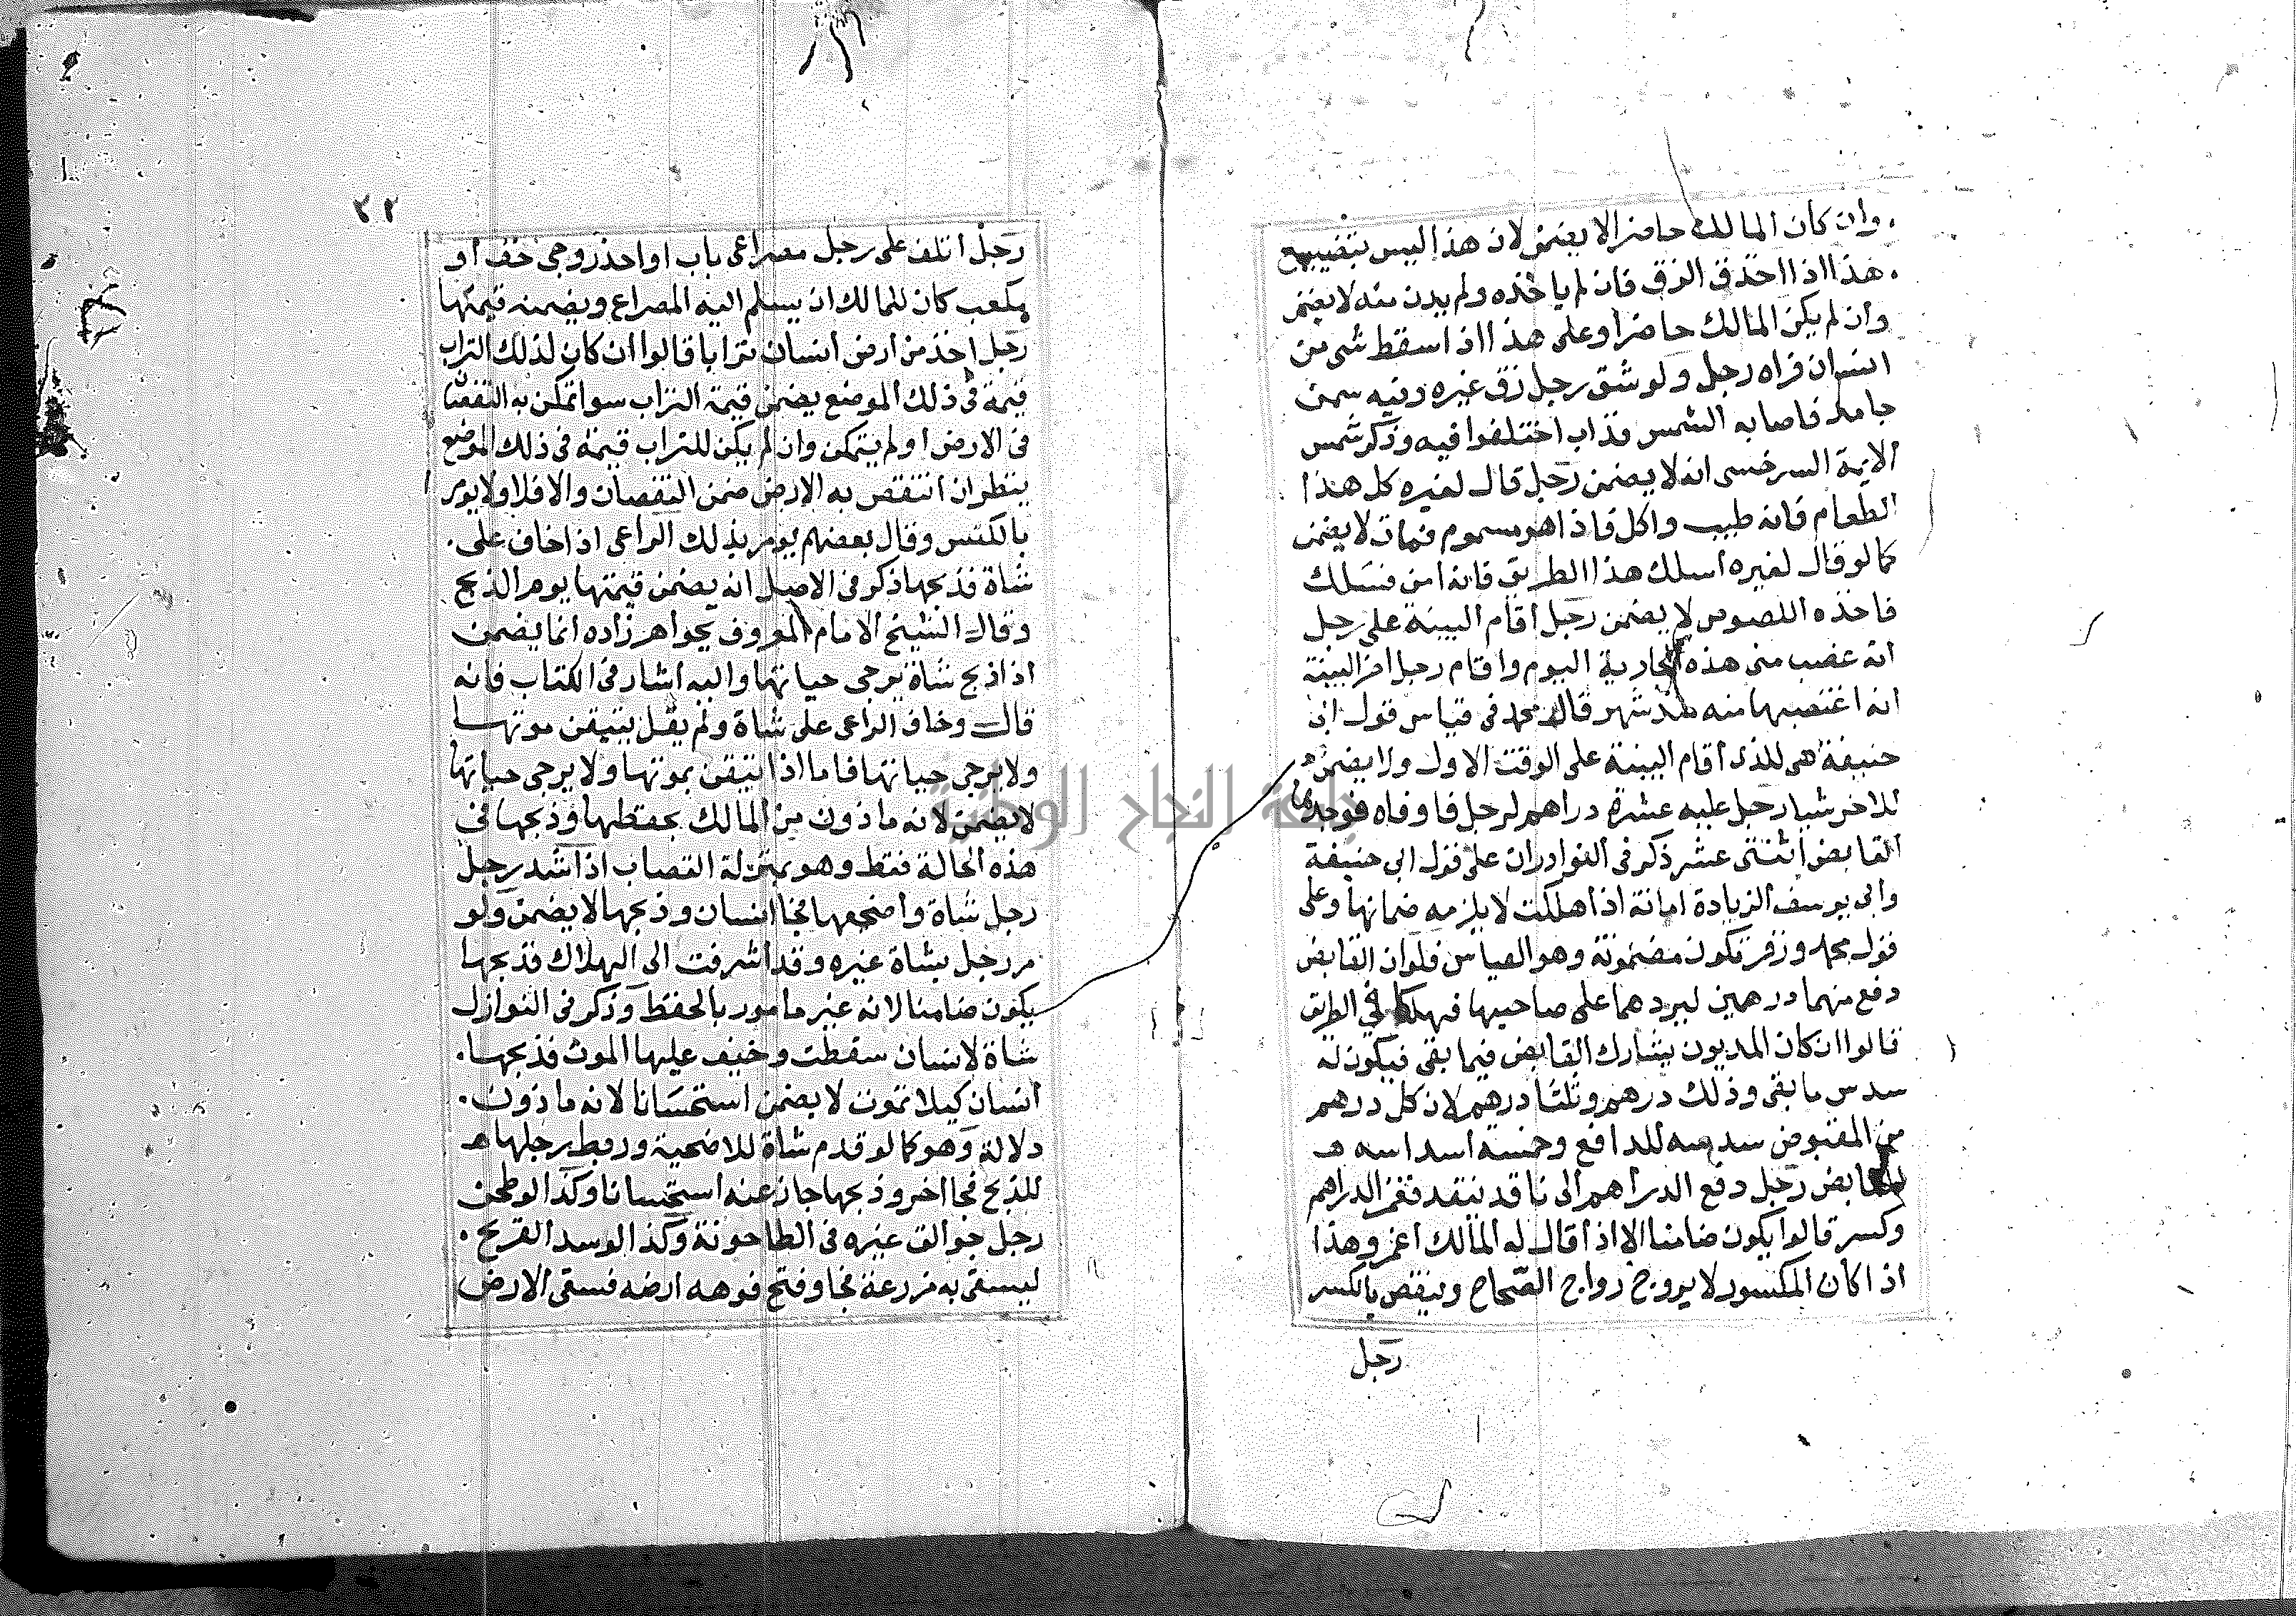 وان كان المالك حاضرا لا يضمن لان هذا ليس بتضييع
هذا اذا اخذ في الزق فان لم ياخذه ولم يدن منه لا يضمن
وان لم يكن المالك حاضرا وعلى هذا اذا سقط شى من
انسان فراه رجل ولو شق رجل زق غيره وفيه سمن
جامد فاصابه الشمس فذاب اختلفوا فيه وذكر شمس
الايمة السرخسى انه لا يضمن رجل قال لغيره كل هذا
الطعام فانه طيب واكل فاذا هو مسموم فمات لا يضمن
كما لو قال لغيره اسلك هذا الطريق فانه امن فسلك
فاخذه اللصوص لا يضمن رجل اقام البينة على رجل
انه غصب منى هذه الجارية اليوم واقام رجل اخر البينة
انه اغتصبها منه مذ شهر قال محمد فى قياس قول ابى
حنيفة هى للذى اقام البينة على الوقت الاول ولا يضمن
للاخر شيا رجل عليه عشرة دراهم لرجل فاوفاه فوجدها
القابض اثنتى عشر ذكر فى النوادر ان على قول ابى حنيفة
وابى يوسف الزيادة امانة اذا هلكت لا يلزمه ضمانها وعلى
قول محمد وزفر تكون مضمونة وهو القياس فلو ان القابض
دفع منهما درهمين ليردهما على صاحبها فهلكا في الطريق
قالوا ان كان المديون يشارك القابض فيما بقى فيكون له
سدس ما بقى وذلك درهم وثلثا درهم لان كل درهم
من المقبوض سدسه للدافع وخمسة اسداسه هـ
للقابض رجل دفع الدراهم الى ناقد ينقد فغمز الدراهم
وكسر قالوا يكون ضامنا الا اذا قال له المالك اغمز وهذا
اذا كان المكسور لا يروج رواج الصحاح وينقص بالكسر
رجل
٣٢
رجل اتلف على رجل مصراعى باب او احذ زوجى خف او
مكعب كان للمالك ان يسلم اليه المصراع ويضمنه قيمتها
رجل اخذ من ارض انسان ترابا قالوا ان كان لذلك التراب
قيمة فى ذلك الموضع يضمن قيمة التراب سوا تمكن به النقصان
فى الارض او لم يتمكن وان لم يكن للتراب قيمة فى ذلك الموضع
ينظر ان انتقص به الارض ضمن النقصان والا فلا ولا يومر
بالكنس وقال بعضهم يومر بذلك الراعى اذا خاف على
شاة فذبحها ذكر فى الاصل انه يضمن قيمتها يوم الذبح
وقال الشيخ الامام المعروف بخواهر زاده انما يضمن
اذا ذبح شاة يرجى حياتها واليه اشار فى الكتاب فانه
قال وخاف الراعى على شاة ولم يقل يتيقن موتها
ولا يرجى حياتها فاما اذا يتيقن بموتها ولا يرجى حياتها
لا يضمن لانه ماذون من المالك بحفظها وذبحها فى
هذه الحالة فقط وهو بمنزلة القصاب اذا شد رجل
رجل شاة واضجعها فجا انسان وذبحها لا يضمن ولو
مر رجل بشاة غيره وقد اشرفت الى الهلاك فذبحها
يكون ضامنا لانه غير مامور بالحفظ وذكر فى النوازل
شاة لانسان سقطت وخيف عليها الموت فذبحها
انسان كيلا تموت لا يضمن استحسانا لانه ماذون
دلالة وهو كما لو قدم شاة للاضحية وربط رجلها هـ
للذبح فجا اخر وذبحها جاز عنه استحسانا وكذا لو طحن
رجل جوالق غيره فى الطاحونة وكذا لو سد القريح
ليسقى به مزرعة فجا وفتح فوهه ارضه فسقى الارض
جامعة النجاح الوطنية